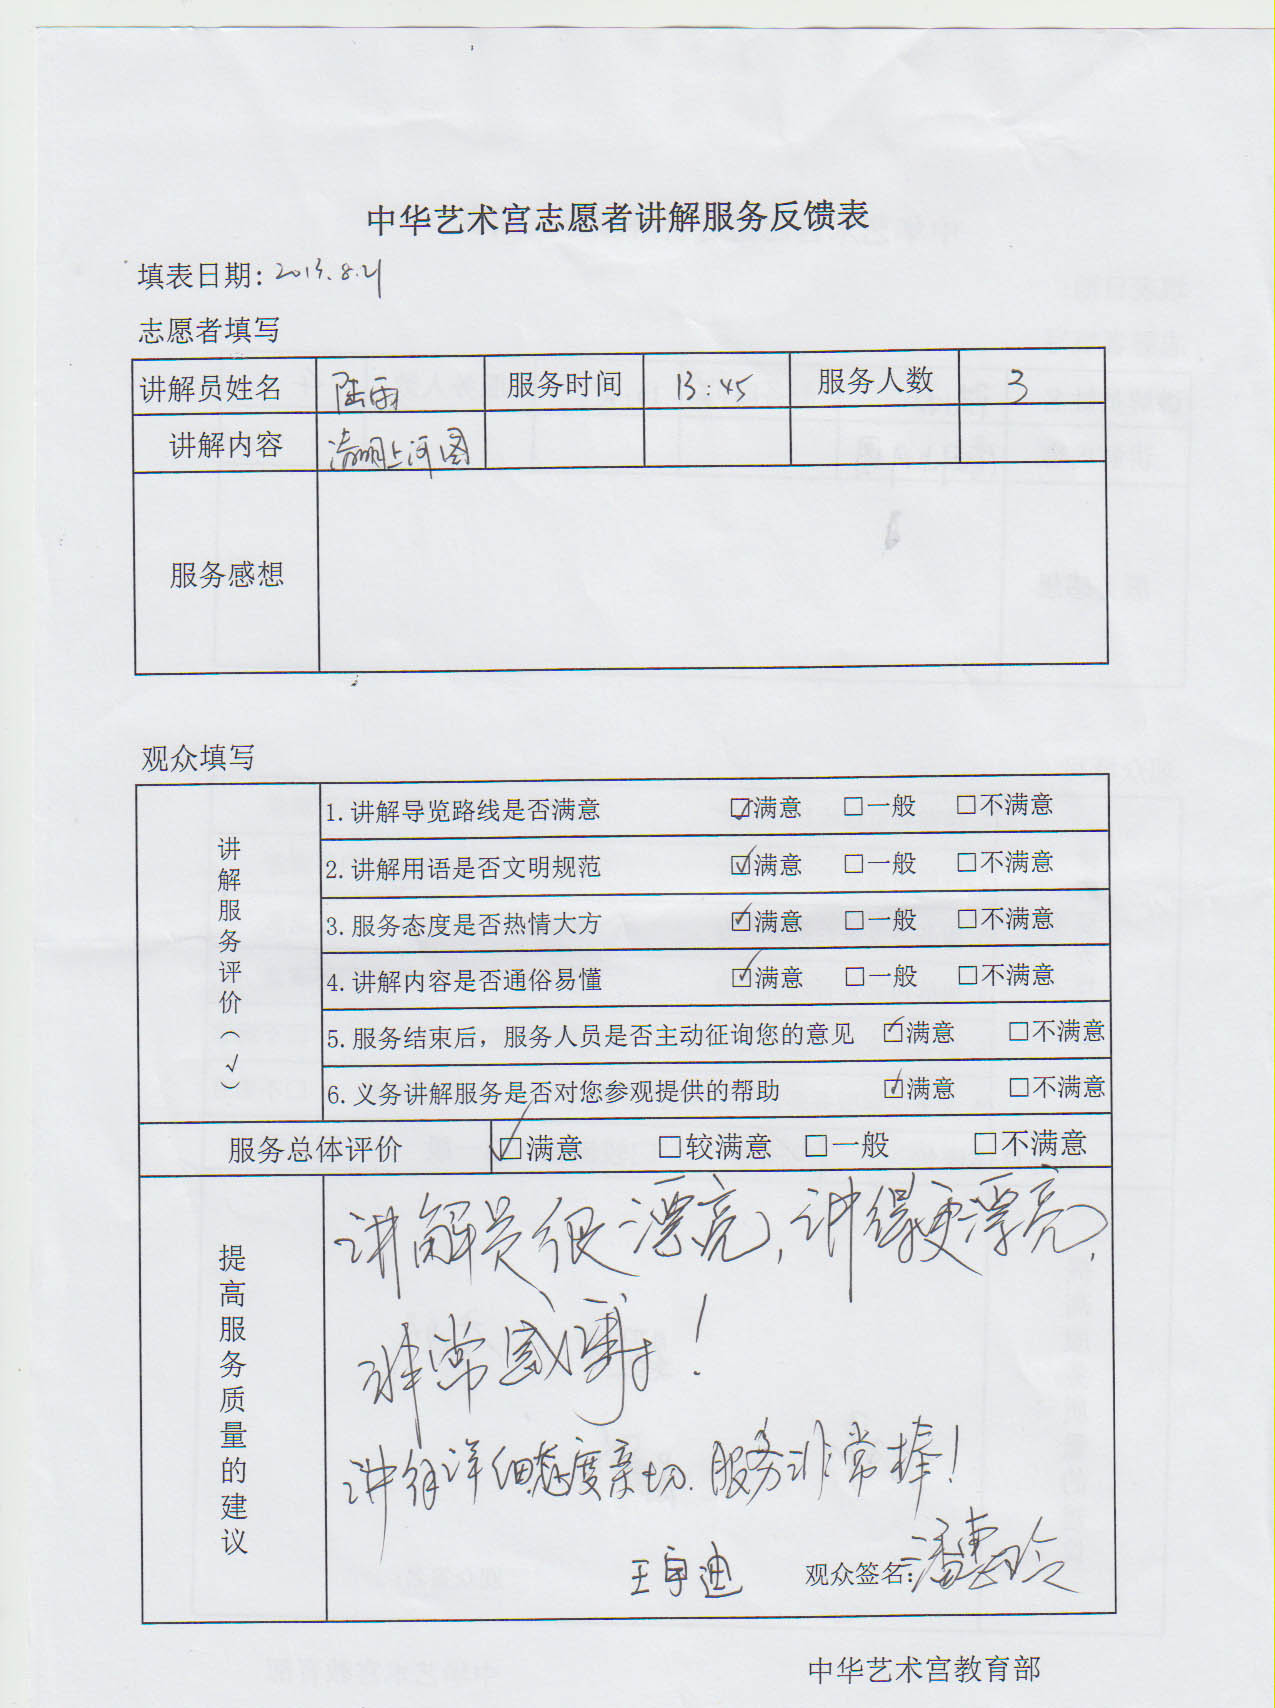 中华艺术宫志愿者讲解服务反馈表
填表日期: 2013.8.21
志愿者填写
讲解员姓名 陆雨 服务时间 13:45 服务人数 3
讲解内容 清明上河图
服务感想
观众填写
讲解服务评价(√)
1.讲解导览路线是否满意 ☑满意 □一般 □不满意
2.讲解用语是否文明规范 ☑满意 □一般 □不满意
3.服务态度是否热情大方 ☑满意 □一般 □不满意
4.讲解内容是否通俗易懂 ☑满意 □一般 □不满意
5.服务结束后，服务人员是否主动征询您的意见 ☑满意 □不满意
6.义务讲解服务是否对您参观提供的帮助 ☑满意 □不满意
服务总体评价 ☑满意 □较满意 □一般 □不满意
提高服务质量的建议
讲解员很漂亮，讲得更漂亮，
非常感谢！
讲得详细态度亲切.服务非常棒！
王宇迪 观众签名:潘惠玲
中华艺术宫教育部